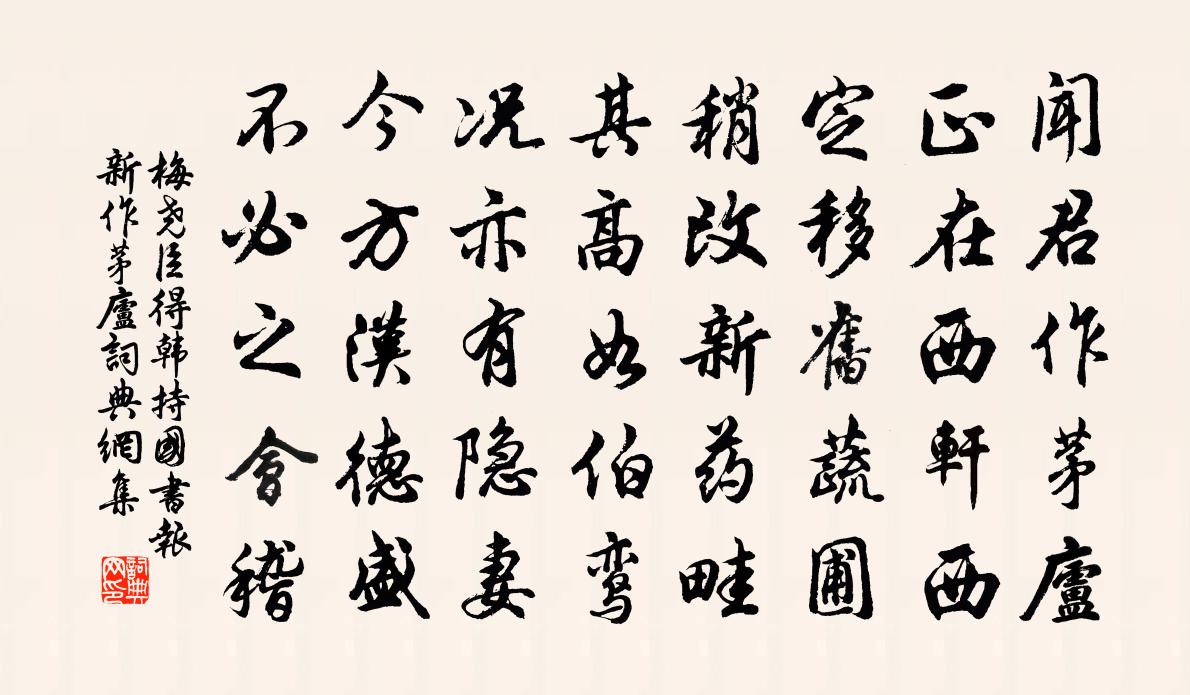 闻君作茅廬
正在西軒西
定移舊蔬圃
稍改新药畦
其高如伯鸾
况亦有隐妻
今方漢德盛
不必之會稽
梅尧臣得韩持國書報
新作茅廬詞典網集
詞典网印